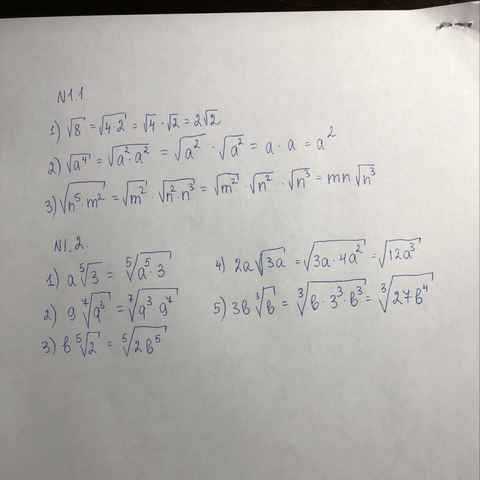 N1.1.
1) √8 = √4·2 = √4 · √2 = 2√2
2) √a⁴ = √a²·a² = √a² · √a² = a · a = a²
3) √n⁵·m² = √m² · √n²·n³ = √m² · √n² · √n³ = mn √n³
N1.2.
1) a ⁵√3 = ⁵√a⁵·3
2) g ⁷√g³ = ⁷√g³·g⁷
3) b ⁵√2 = ⁵√2b⁵
4) 2a√3a = √3a·4a² = √12a³
5) 3b ³√b = ³√b·3³·b³ = ³√27b⁴